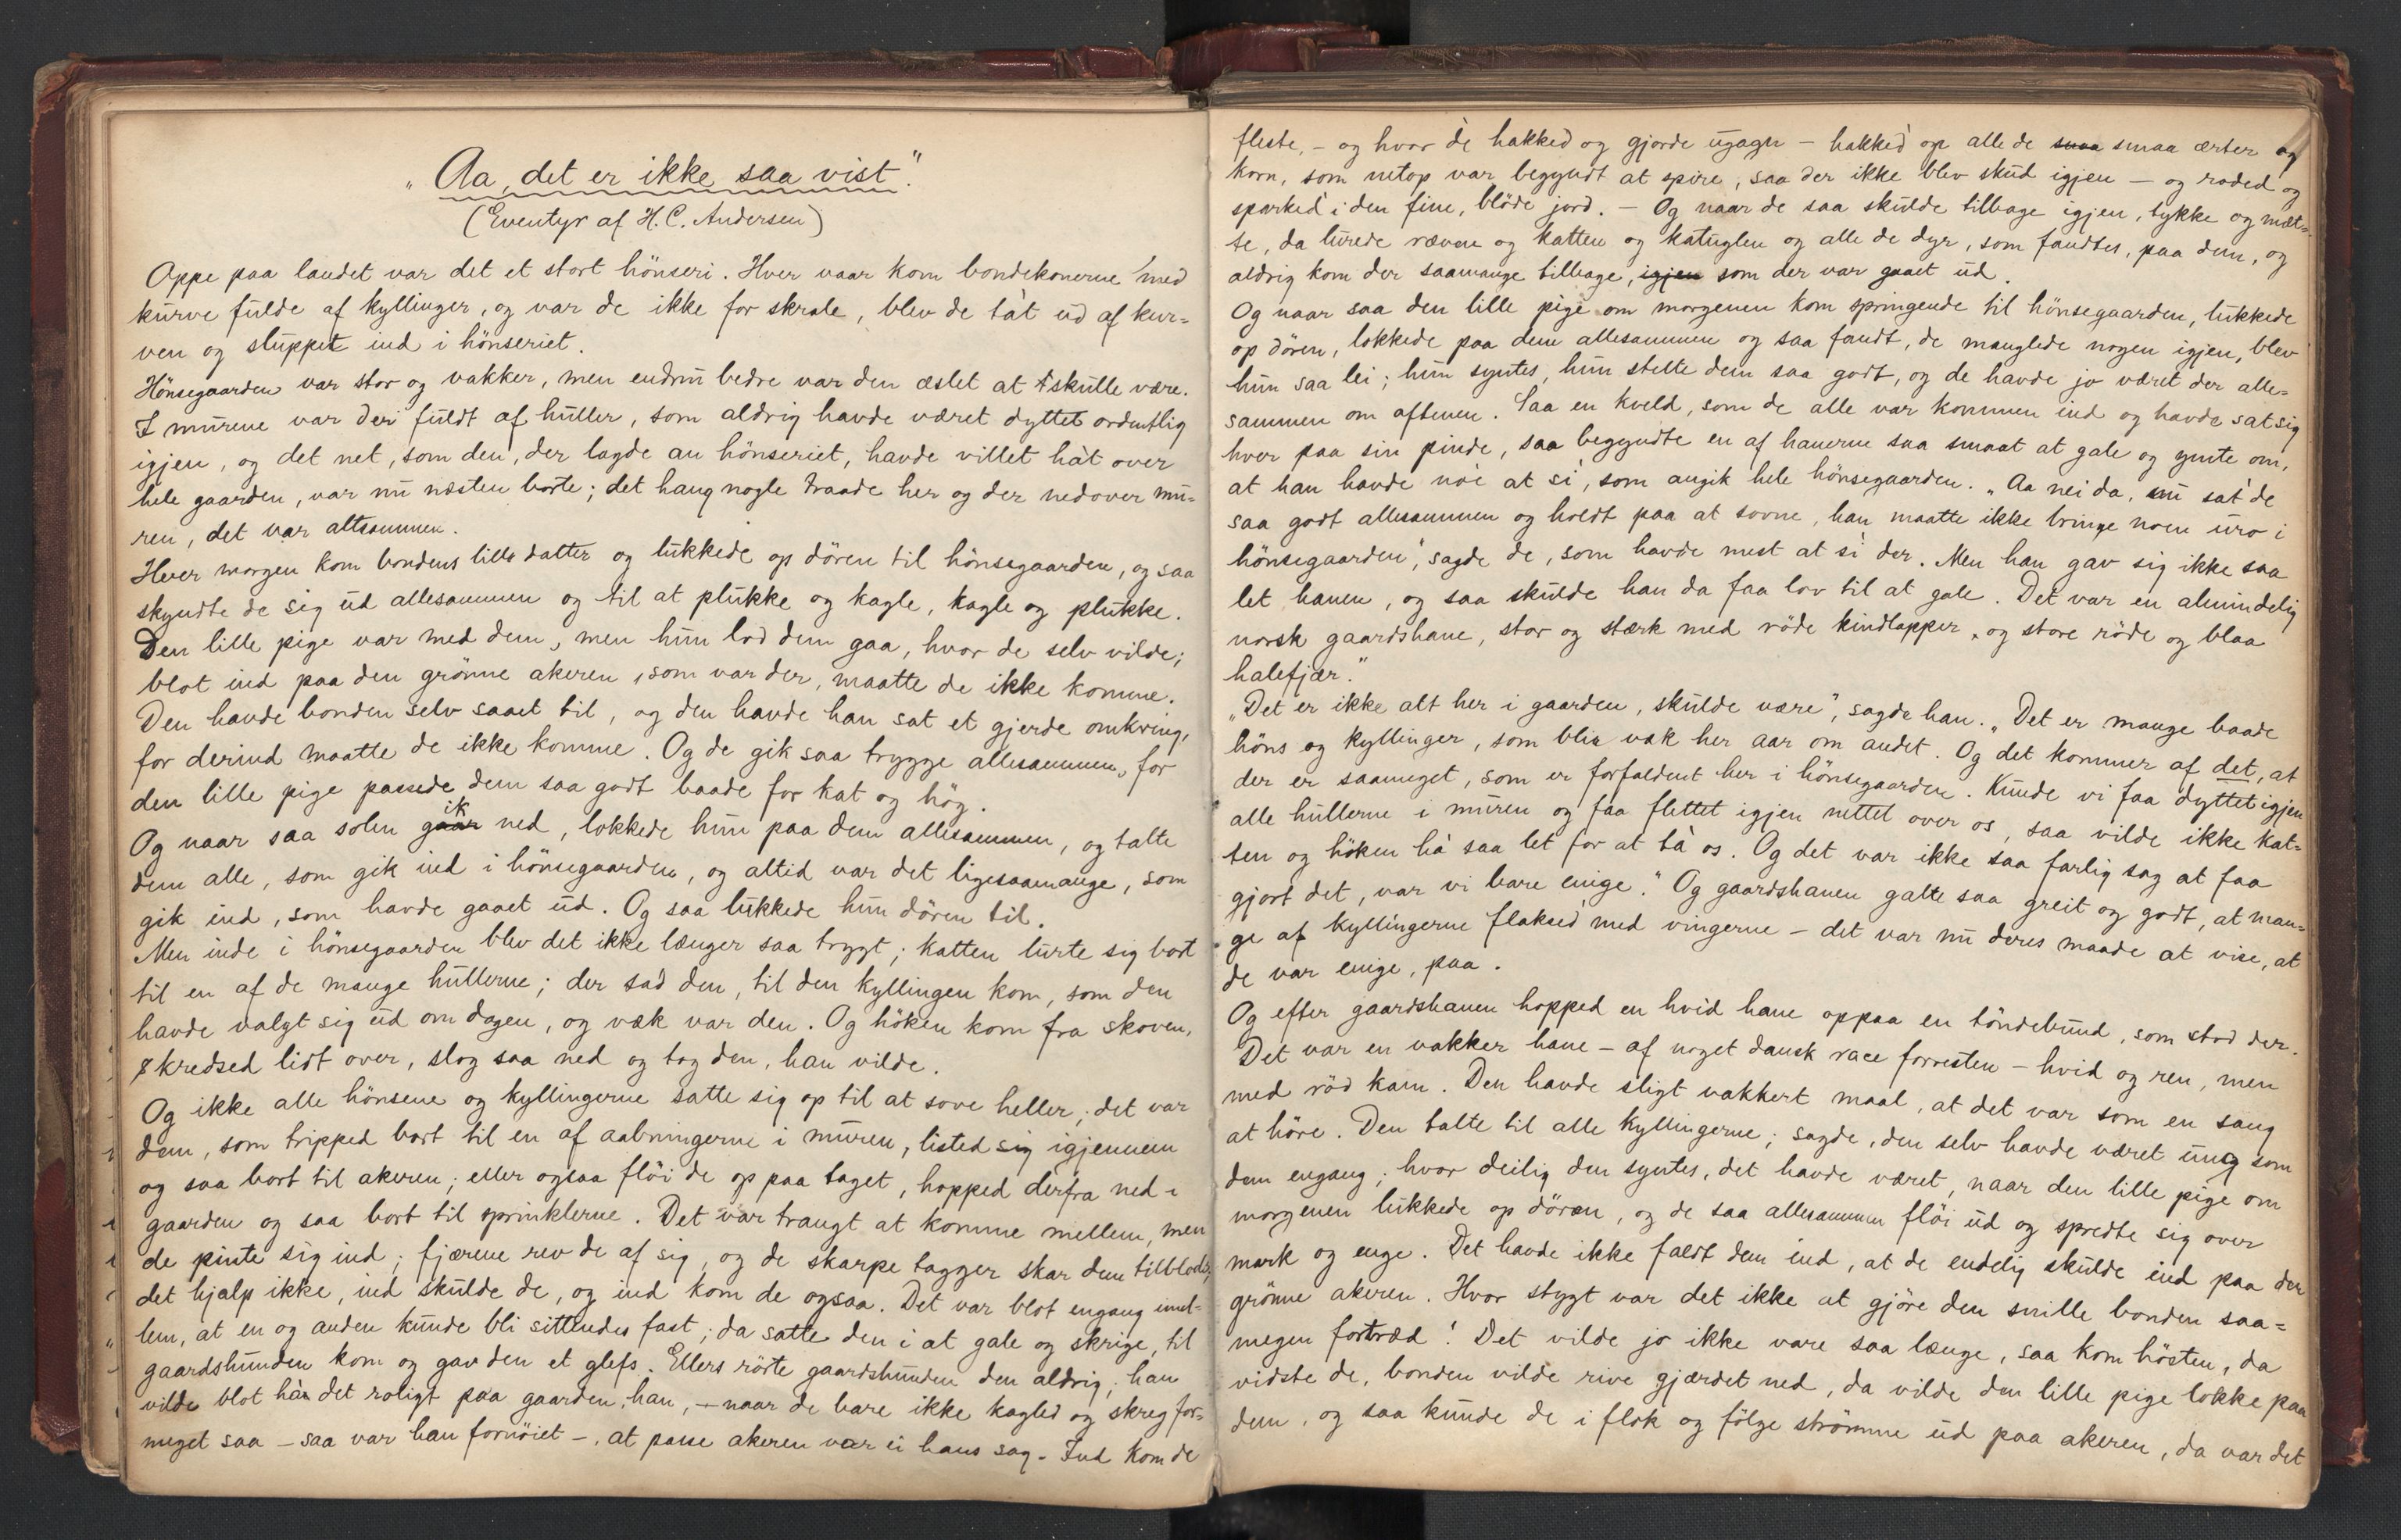 „Aa, det er ikke saa vist".
(Eventyr af H. C. Andersen)
Oppe paa landet var det et stort hönseri. Hver vaar kom bondekonerne med
kurve fulde af kyllinger, og var de ikke for skrale, blev de ta't ud af kur=
ven og sluppet ind i hönseriet.
Hönsegaarden var stor og vakker, men endnu bedre var den æslet at skulle være.
I murene var der fuldt af huller, som aldrig havde været dyttet ordentlig
igjen, og det net, som den, der lagde an hönseriet, havde villet hat over
hele gaarden, var nu næsten borte; det hang nogle traade her og der nedover mu=
ren, det var altsammen.
Hver morgen kom bondens lille datter og lukkede op dören til hönsegaarden, og saa
skyndte de sig ud allesammen og til at plukke og kagle, kagle og plukke.
Den lille pige var med dem, men hun lod dem gaa, hvor de selv vilde;
blot ind paa den grönne akeren, som var der, maatte de ikke komme.
Den havde bonden selv saaet til, og den havde han sat et gjerde omkring,
for derind maatte de ikke komme. Og de gik saa trygge allesammen, for
den lille pige passede dem saa godt baade for kat og hög.
Og naar saa solen gik ned, lokkede hun paa dem allesammen, og talte
dem alle, som gik ind i hönsegaarden, og altid var det ligesaamange, som
gik ind, som havde gaaet ud. Og saa lukkede hun dören til.
Men inde i hönsegaarden blev det ikke længer saa trygt; katten lurte sig bort
til en af de mange hullerne; der sad den, til den kyllingen kom, som den
havde valgt sig ud om dagen, og væk var den. Og höken kom fra skoven,
kredsed lidt over, slog saa ned og tog den, han vilde.
Og ikke alle hönsene og kyllingerne satte sig op til at sove heller; det var
dem, som tripped bort til en af aabningerne i muren, listed sig igjennem
og saa bort til akeren; eller ogsaa flöi de op paa taget, hopped derfra ned i
gaarden og saa bort til sprinklerne. Det var trangt at komme mellem, men
de pinte sig ind; fjærene rev de af sig, og de skarpe tagger skar dem tilblods,
det hjalp ikke, ind skulde de, og ind kom de ogsaa. Det var blot engang imel=
lem, at en og anden kunde bli sittendes fast; da satte den i at gale og skrige, til
gaardshunden kom og gav den et glefs. Ellers rörte gaardshunden den aldrig; han
vilde blot ha det roligt paa gaarden, han, – naar de bare ikke kagled og skreg for=
meget saa – saa var han fornöiet –, at passe akeren var ei hans sag. Ind kom de
fleste, – og hvor de hakked og gjorde ugagn – hakked op alle de smaa ærter og
korn, som netop var begyndt at spire, saa der ikke blev skud igjen – og roded og
sparked i den fine, blöde jord. – Og naar de saa skulde tilbage igjen, tykke og mæt=
te, da lurede ræven og katten og katuglen og alle de dyr, som fandtes, paa dem, og
aldrig kom der saamange tilbage, igjen som der var gaaet ud.
Og naar saa den lille pige om morgenen kom springende til hönsegaarden, lukkede
op dören, lokkede paa dem allesammen og saa fandt, de manglede nogen igjen, blev
hun saa lei; hun syntes, hun stelte dem saa godt, og de havde jo været der alle=
sammen om aftenen. Saa en kveld, som de alle var kommen ind og havde sat sig
hver paa sin pinde, saa begyndte en af hanerne saa smaat at gale og ymte om,
at han havde noe at si, som angik hele hönsegaarden. „Aa nei da, nu sat de
saa godt allesammen og holdt paa at sovne, han maatte ikke bringe noen uro i
hönsegaarden", sagde de, som havde mest at si der. Men han gav sig ikke saa
let hanen, og saa skulde han da faa lov til at gale. Det var en almindelig
norsk gaardshane, stor og stærk med röde kindlapper, og store röde og blaa
halefjær."
„Det er ikke alt her i gaarden, skulde være", sagde han. „Det er mange baade
höns og kyllinger, som blir væk her aar om andet. Og det kommer af det, at
der er saameget, som er forfaldent her i hönsegaarden. Kunde vi faa dyttet igjen
alle hullerne i muren og faa flettet igjen nettet over os, saa vilde ikke kat=
ten og höken ha saa let for at ta os. Og det var ikke saa farlig sag at faa
gjort det, var vi bare enige." Og gaardshanen galte saa greit og godt, at man=
ge af kyllingerne flaksed med vingerne – det var nu deres maade at vise, at
de var enige, paa.
Og efter gaardshanen hopped en hvid hane oppaa en töndebund, som stod der.
Det var en vakker hane – af noget dansk race forresten – hvid og ren, men
med röd kam. Den havde sligt vakkert maal, at det var som en sang
at höre. Den talte til alle kyllingerne; sagde, den selv havde været ung som
dem engang; hvor deilig den syntes, det havde været, naar den lille pige om
morgenen lukkede op dören, og de saa allesammen flöi ud og spredte sig over
mark og enge. Det havde ikke faldt dem ind, at de endelig skulde ind paa den
grönne akeren. Hvor stygt var det ikke at gjöre den snille bonden saa=
megen fortræd! Det vilde jo ikke vare saa længe, saa kom hösten, da
vidste de, bonden vilde rive gjærdet ned, da vilde den lille pige lokke paa
dem, og saa kunde de i flok og fölge strömme ud paa akeren, da var det